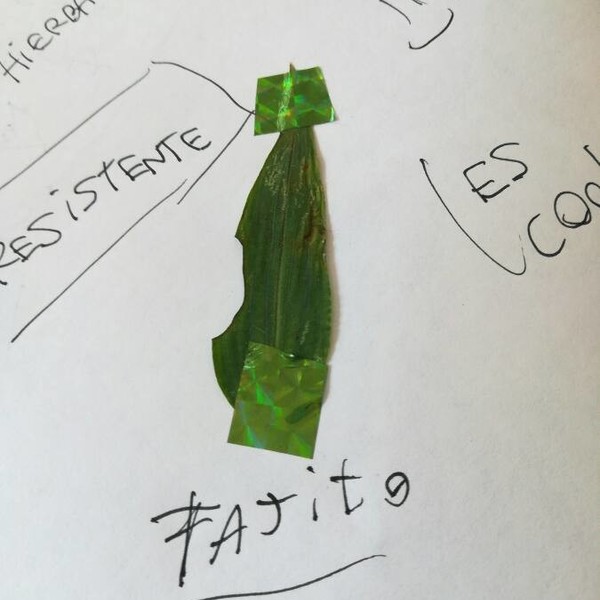 HIERBA
RESiSTENTE
ES
COOL
FAJito